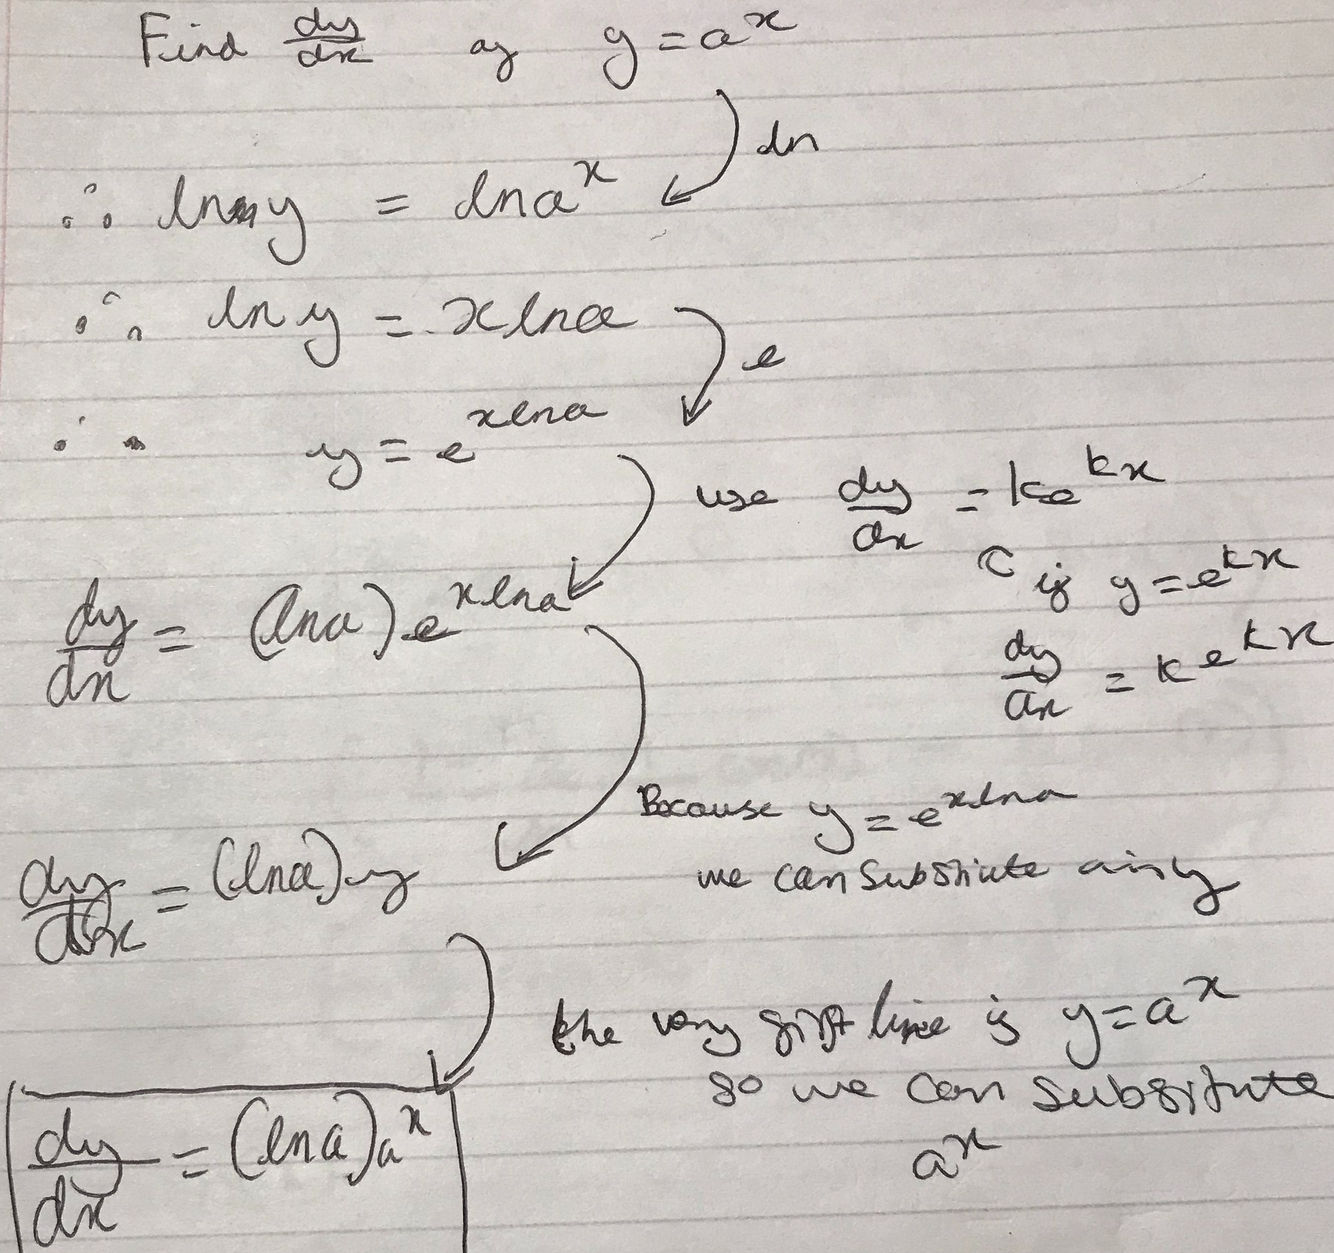 Find dy/dx of y = a^x
ln
∴ ln y = ln a^x
∴ ln y = x ln a
e
∴ y = e^(x ln a)
use dy/dx = ke^(kx)
if y = e^(kx)
dy/dx = ke^(kx)
dy/dx = (ln a) e^(x ln a)
Because y = e^(x ln a)
we can substitute
dy/dx = (ln a) y
the very first line is y = a^x
so we can subsitute
a^x
dy/dx = (ln a) a^x